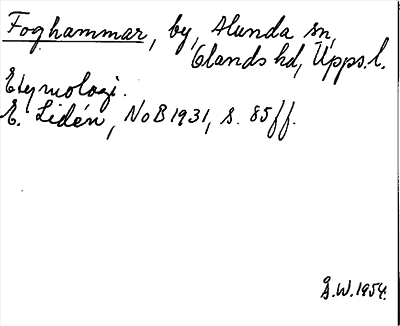 Foghammar, by, Alunda sn,
Olands hd, Upps.l.
Etymologi.
E. Lidén, NoB 1931, s. 85ff.
G.W. 1954.